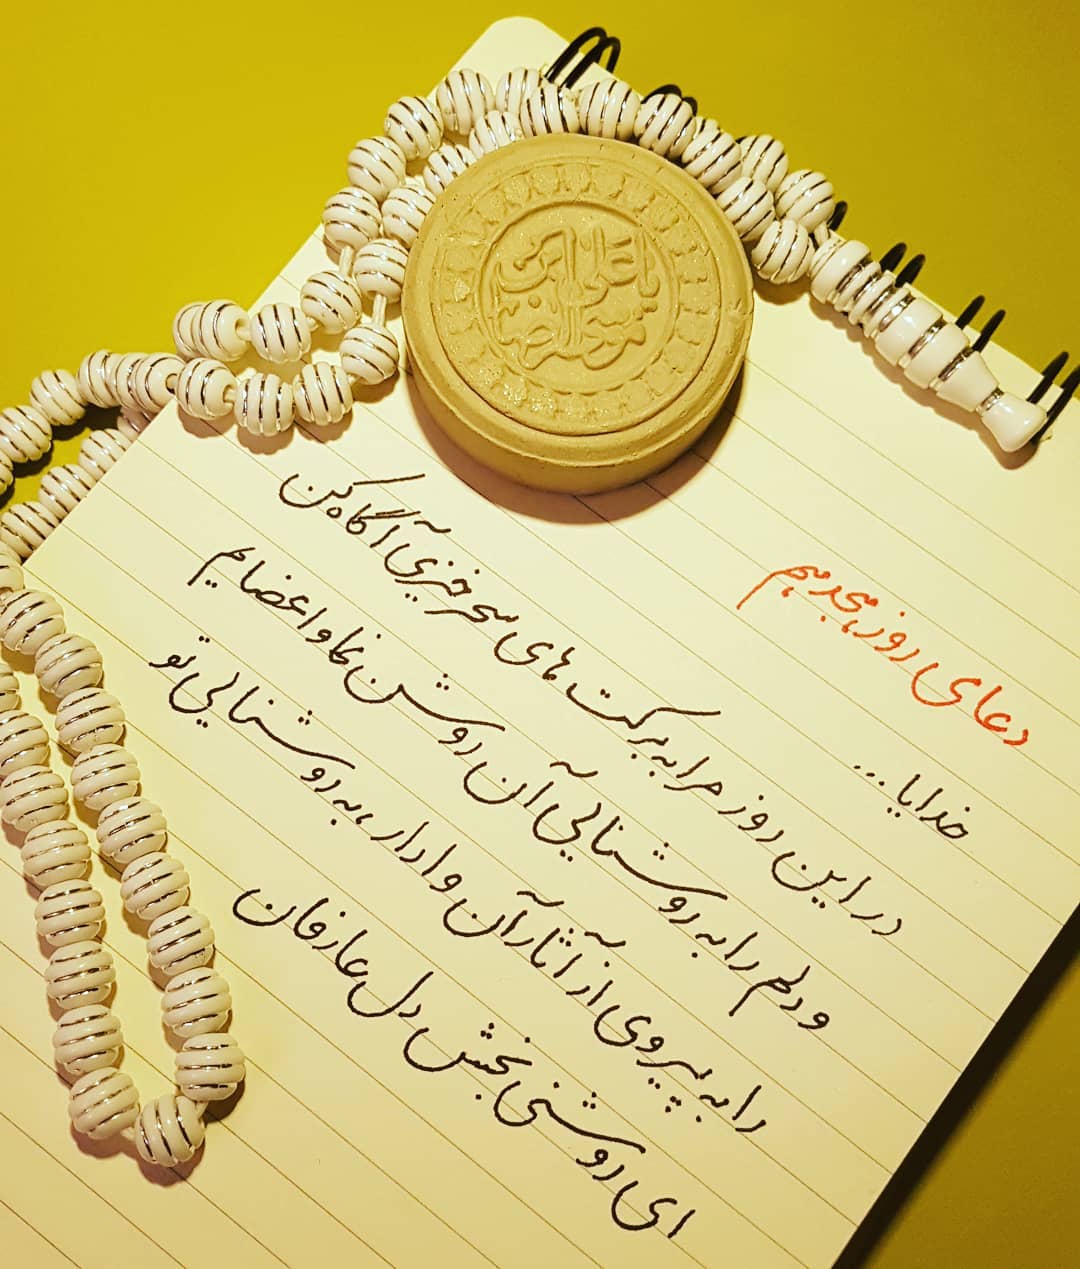 یا علی بن موسی الرضا
دعای روز هجدهم
خدایا...
در این روز مرا به برکت های سحرخیزی آگاه کن
و دلم را به روشنایی آن روشن نما و اعضایم
را به پیروی از آثار آن وادار، به روشنایی تو
ای روشنی بخش دل عارفان